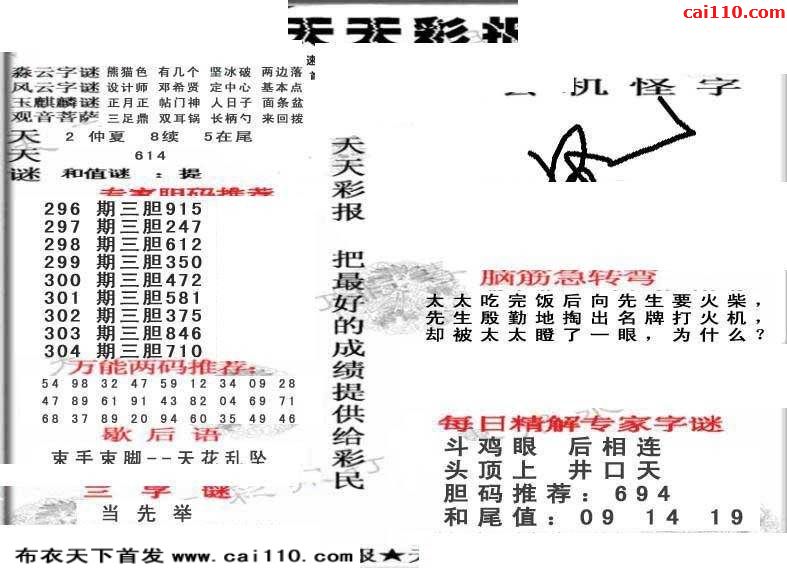 cai110.com
天天彩报
森云字谜 熊猫色 有几个 坚冰破 两边落
风云字谜 设计师 邓希贤 定中心 基本点
玉麒麟谜 正月正 帖门神 人日子 面条盆
观音菩萨 三足鼎 双耳锅 长柄勺 来回拨
天 2 仲夏 8续 5在尾
天 614
谜 和值谜 : 提
专家胆码推荐
296 期三胆915
297 期三胆247
298 期三胆612
299 期三胆350
300 期三胆472
301 期三胆581
302 期三胆375
303 期三胆846
304 期三胆710
万能两码推荐:
54 98 32 47 59 12 34 09 28
47 89 61 91 43 82 04 69 71
68 37 89 20 94 60 35 49 46
歇后语
束手束脚--天花乱坠
三字谜
当先举
天天彩报 把最好的成绩提供给彩民
机怪字
脑筋急转弯
太太吃完饭后向先生要火柴,
先生殷勤地掏出名牌打火机,
却被太太瞪了一眼,为什么?
每日精解专家字谜
斗鸡眼 后相连
头顶上 井口天
胆码推荐: 694
和尾值: 09 14 19
布衣天下首发 www.cai110.com